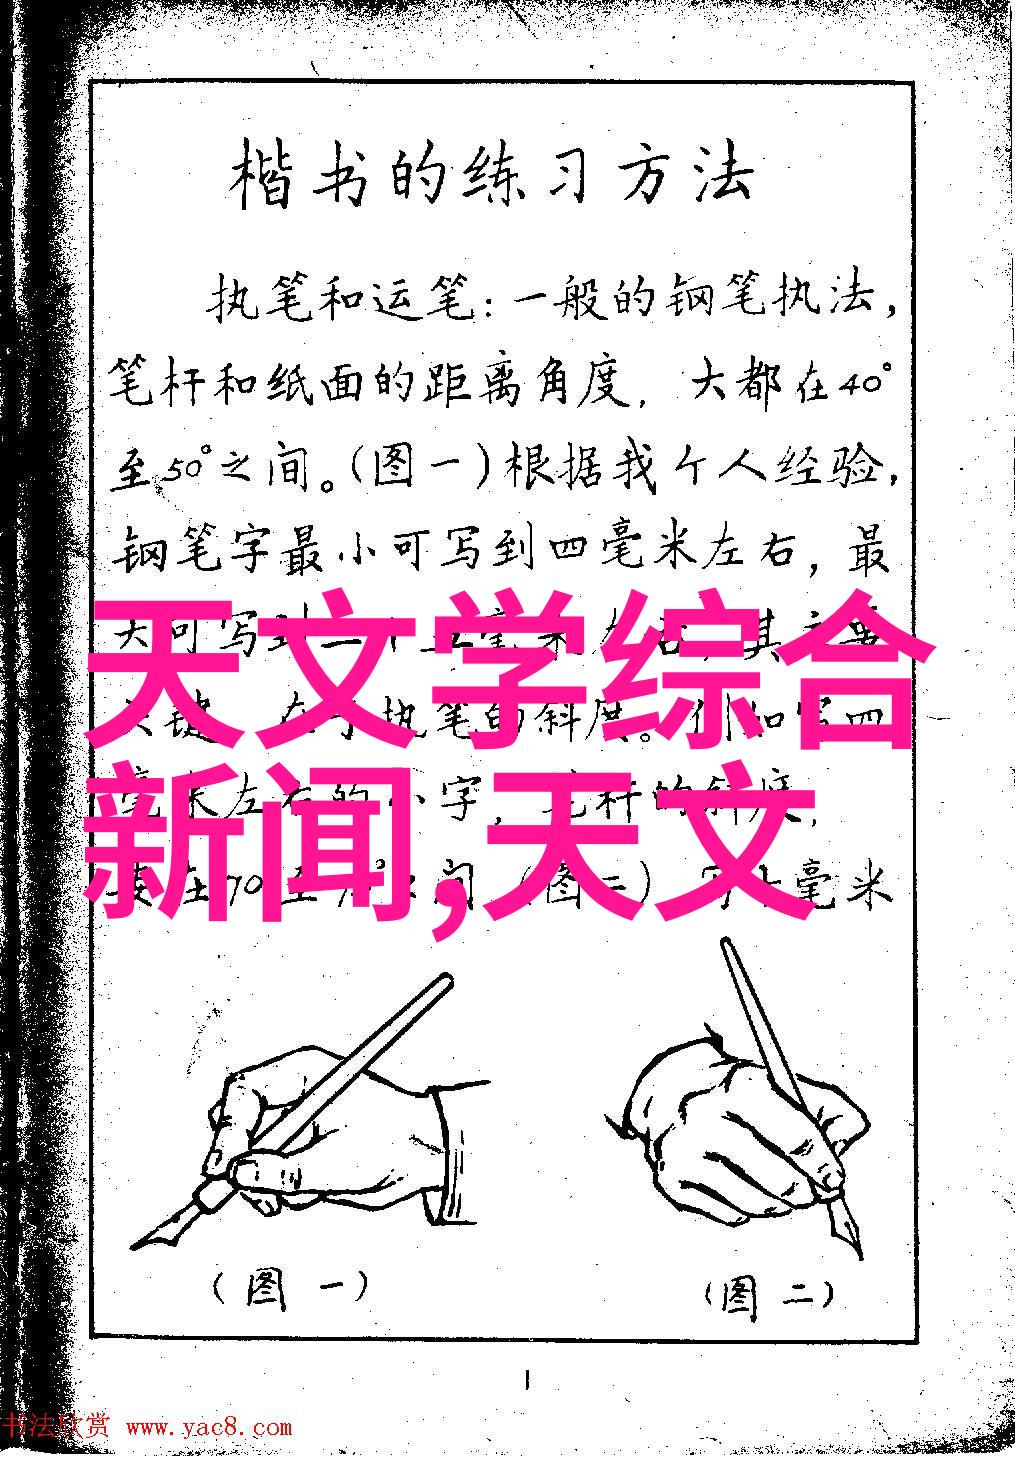 楷书的练习方法
执笔和运笔：一般的钢笔执法，
笔杆和纸面的距离角度，大都在40°
至50°之间。(图一)根据我个人经验，
钢笔字最小可写到四毫米左右，最
天文学综合
新闻,天文
大可写到
键 在于执笔的斜度。例如写四
毫米左右的小字，笔杆的斜度，
要在70至 间(图二) 毫米
(图一)
(图二)
1
书法欣赏 www.yac8.com